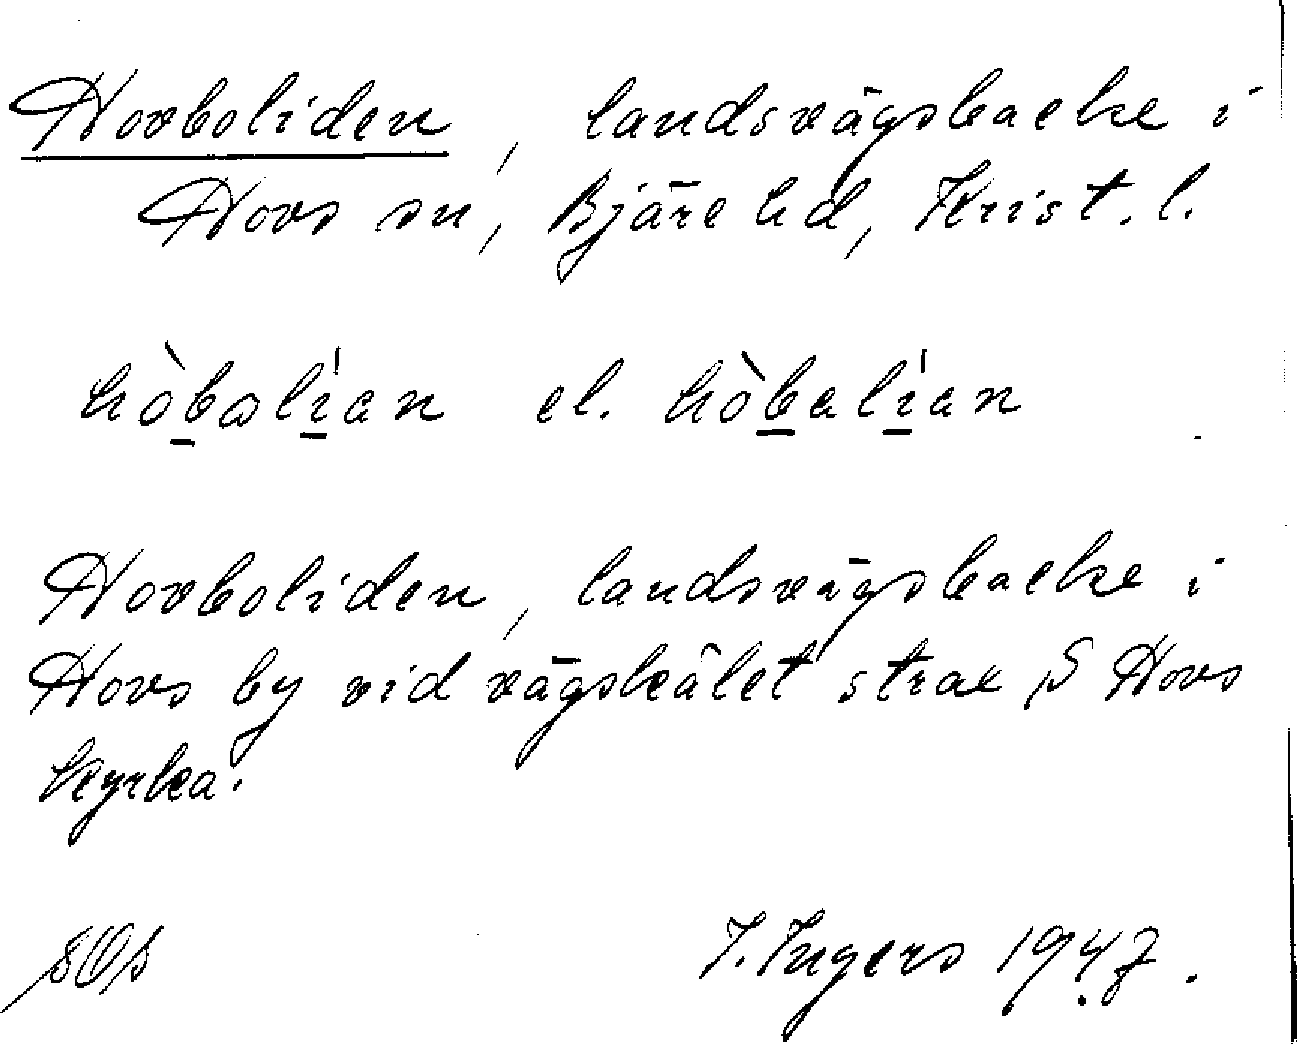 Hovboliden, landsvägsbacke i
Hovs sn, Bjäre hd, Krist. l.
hòbalían el. hòbalían
Hovboliden, landsvägsbacke i
Hovs by vid vägskälet strax S Hovs
kyrka.
I. Ingers 1947.